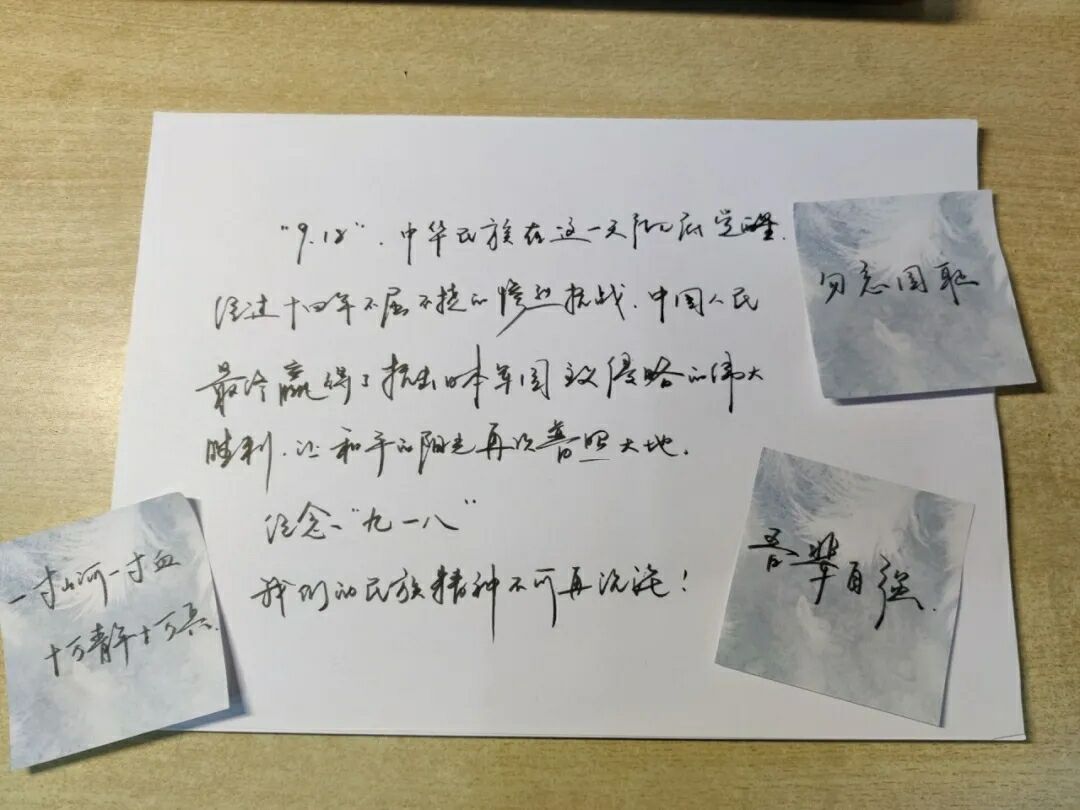 "9.18"，中华民族在这一天彻底觉醒，
经过十四年不屈不挠的惨烈抗战，中国人民
最终赢得了抗击日本军国主义侵略的伟大
胜利，让和平的阳光再次普照大地。
纪念"九一八"
我们的民族精神不可再沉沦！
勿忘国耻
吾辈自强。
一寸山河一寸血
十万青年十万兵。